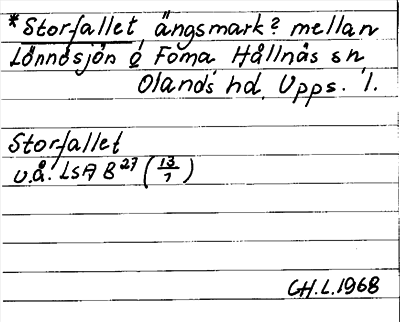 *Storfallet, ängsmark? mellan
Lönnösjön o Foma Hållnäs sn,
Olands hd, Upps. l.
Storfallet
u.å. LSA B27 (13/1)
CH.L.1968